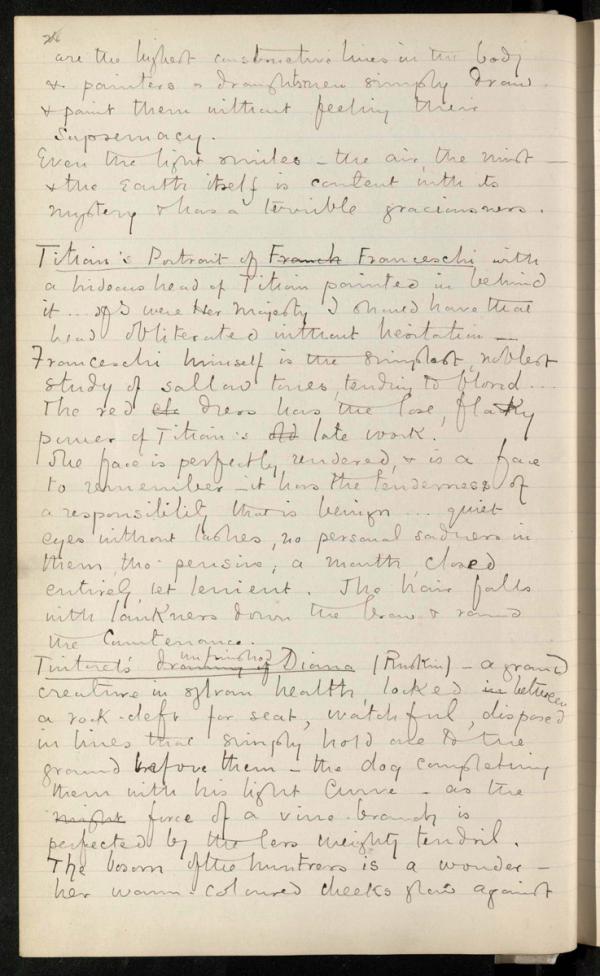 26
are the highest constructive lines in the body
& painters & draughtsmen simply draw
& paint them without feeling their
supremacy.
Even the light smiles – the air, the mist –
& the Earth itself is content with its
mystery & has a terrible graciousness.
Titian's Portrait of Franch Franceschi with
a hideous head of Titian painted in behind
it ... If I were Her Majesty I should have that
head obliterated without hesitation –
Franceschi himself is the simplest, noblest
study of sallow tones, tending to blond ...
The red dress has the lose, flaky
power of Titian's old late work.
The face is perfectly rendered, & is a face
to remember – it has the tenderness of
a responsibility that is benign ... quiet
eyes without lashes, no personal sadness in
them tho' pensive, a mouth, closed
entirely yet lenient. The hair falls
with lankness down the brow & round
the Countenance.
unfinished
Tintoret's drawing of Diana (Ruskin) – a grand
creature in sylvan health, locked in between
a rock-cleft for seat, watchful, disposed
in lines that simply hold one to the
ground before them – the dog completing
them with his light curve – as the
might force of a vine-branch is
perfected by the less weighty tendril.
The bosom of the huntress is a wonder –
her warm-coloured cheeks glow against